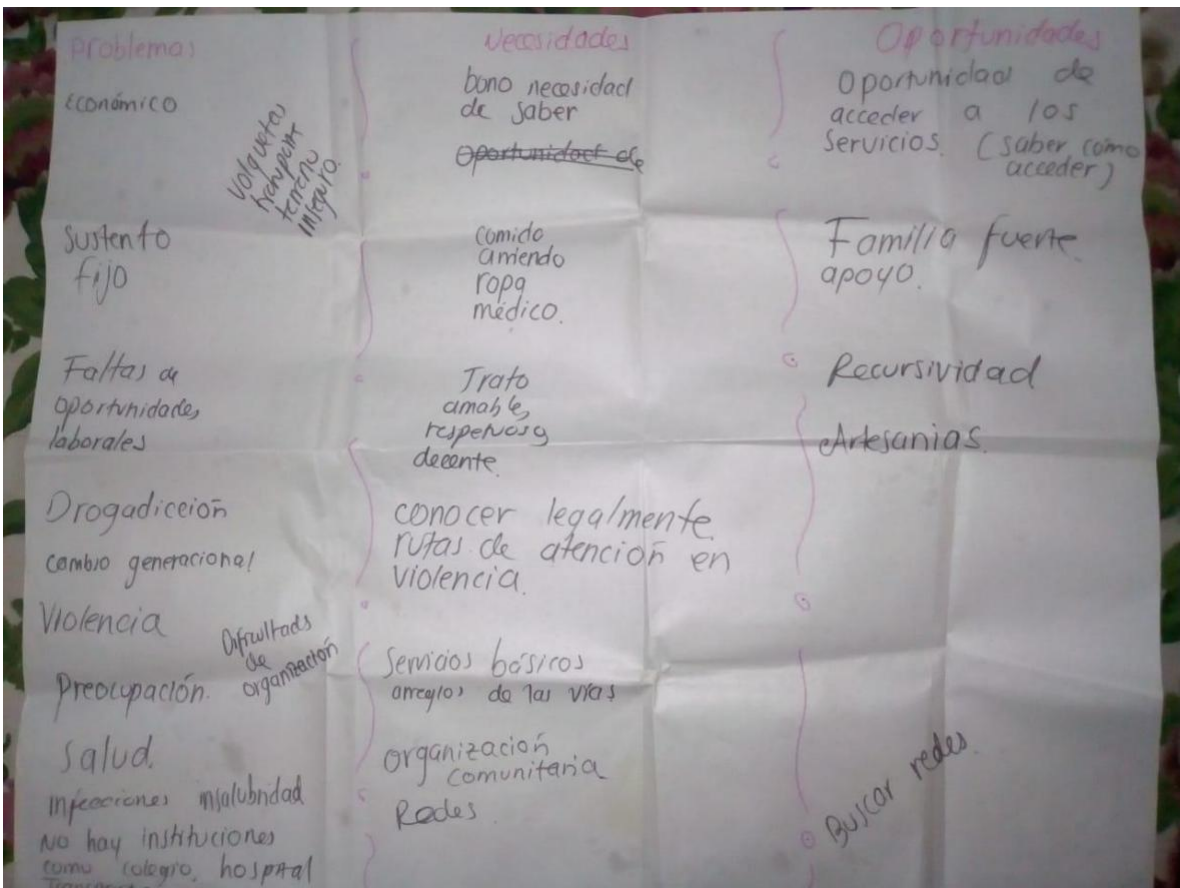 Problemas
Económico
Volquetas
terreno
inseguro.
Sustento
fijo
Faltas de
oportunidades
laborales
Drogadicción
cambio generacional
Violencia
Dificultads
de
organización
Preocupación.
Salud.
Infecciones insalubridad
No hay instituciones
como colegio, hospital
Necesidades
bono necesidad
de saber
Oportunidad de
comida
arriendo
ropa
médico.
Trato
amable,
respetuoso y
decente.
conocer legalmente
rutas de atención en
violencia.
Servicios básicos
arreglos de las vías
organización
comunitaria
Redes.
Oportunidades
Oportunidad de
acceder a los
Servicios. (saber como
acceder)
Familia fuerte
apoyo.
Recursividad
Artesanias.
Buscar redes.